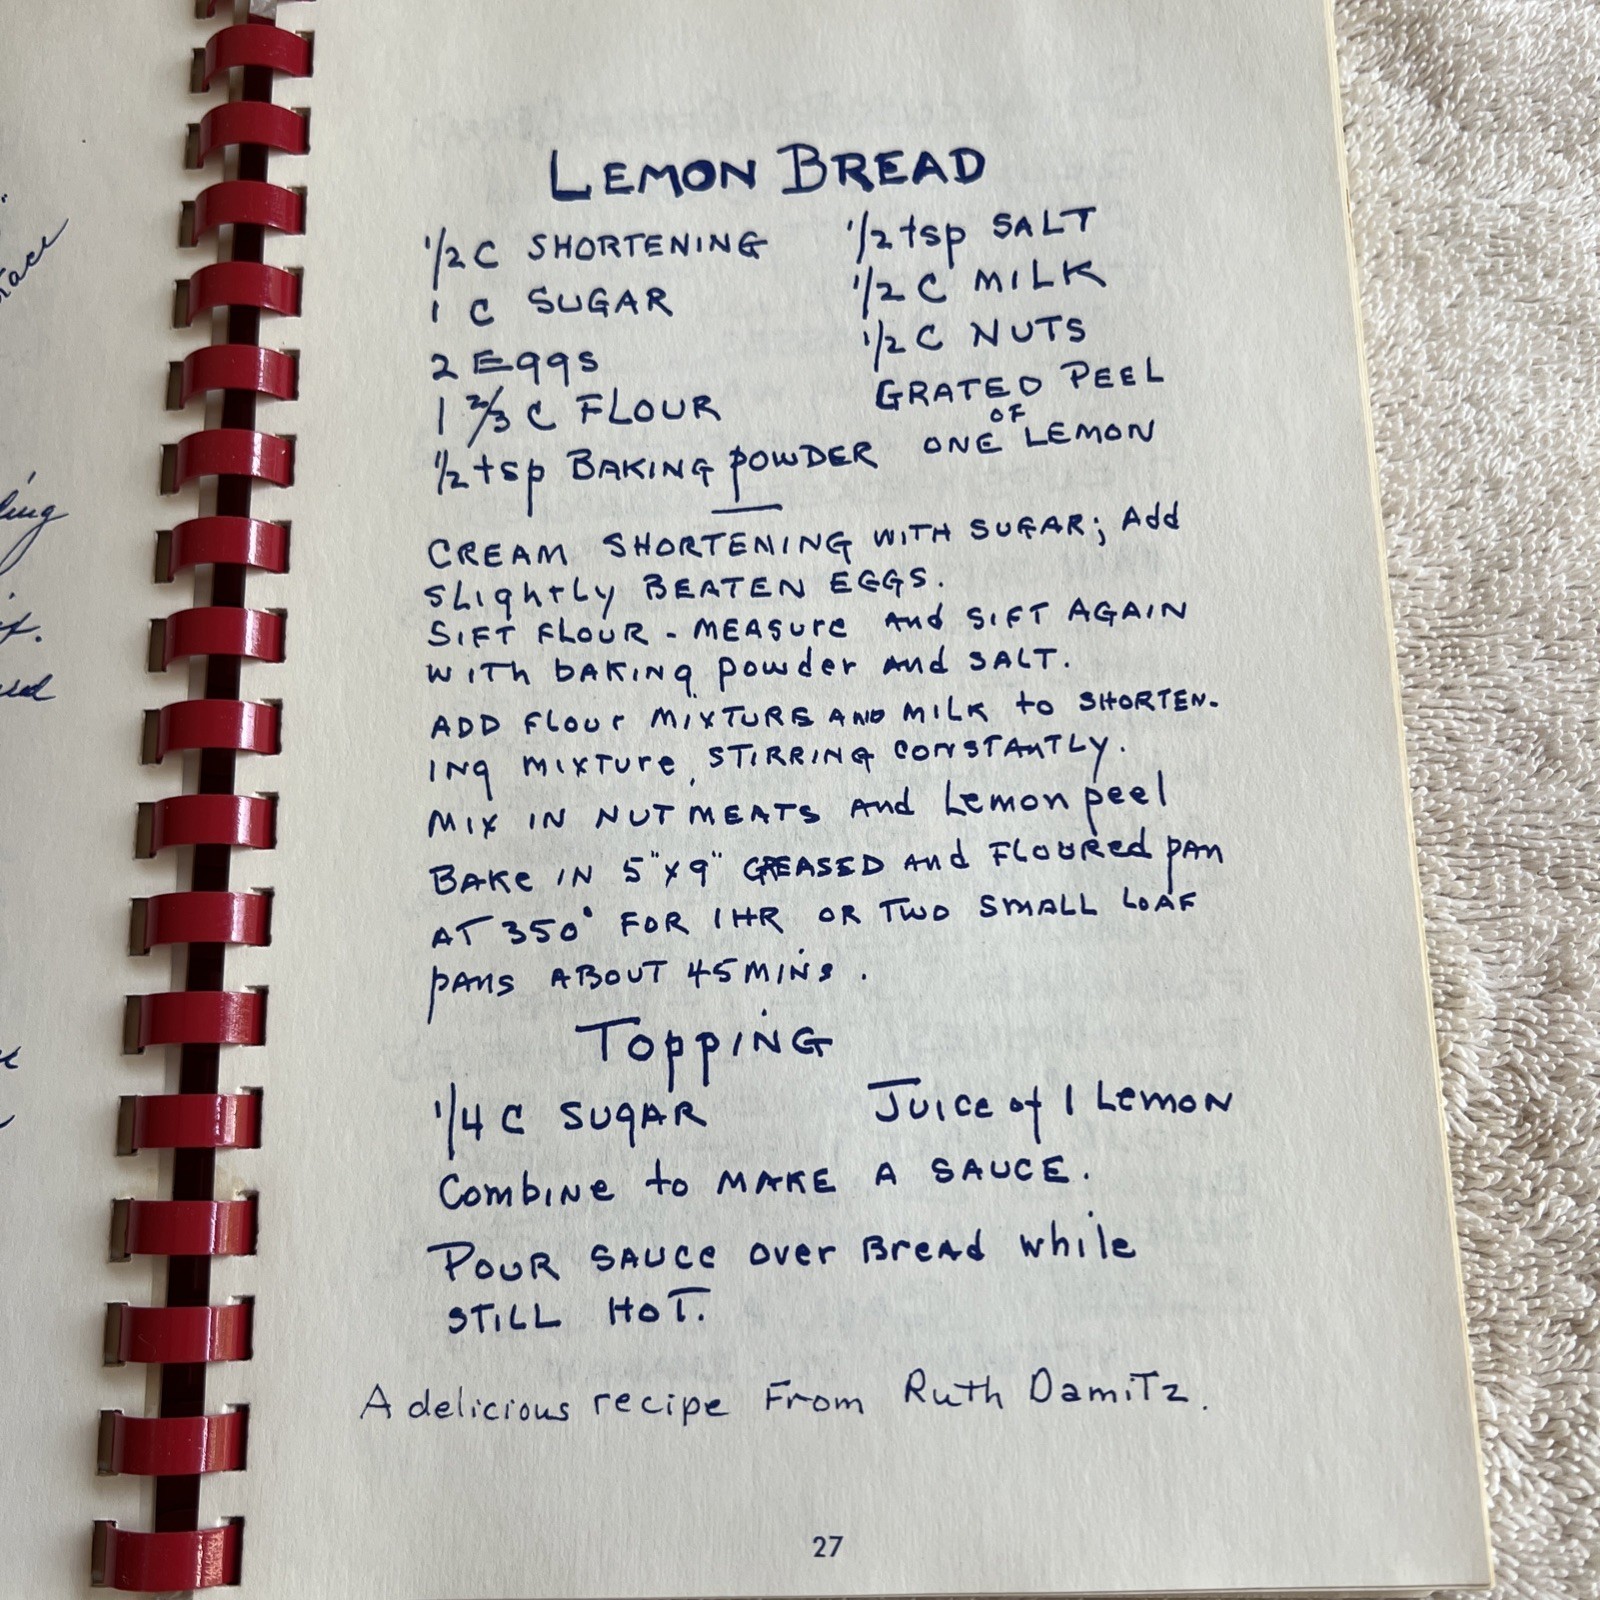 LEMON BREAD
1/2 C SHORTENING
1 C SUGAR
2 EGGS
1 2/3 C FLOUR
1/2 tsp BAKING POWDER
1/2 tsp SALT
1/2 C MILK
1/2 C NUTS
GRATED PEEL
OF
ONE LEMON
CREAM SHORTENING WITH SUGAR; Add
SLIGHTLY BEATEN EGGS.
SIFT FLOUR - MEASURE and SIFT AGAIN
WITH BAKING powder and SALT.
ADD FLOUR MIXTURE AND MILK to SHORTEN-
ING MIXTURE, STIRRING CONSTANTLY.
MIX IN NUT MEATS and Lemon peel
BAKE IN 5"x9" GREASED and FLOURED pan
AT 350° FOR 1 HR OR TWO SMALL LOAF
pans ABOUT 45 MINS.
TOPPING
1/4 C SUGAR
Juice of 1 LEMON
Combine to MAKE A SAUCE.
POUR SAUCE over BREAD while
STILL HOT.
A delicious recipe From Ruth Damitz.
27
ling